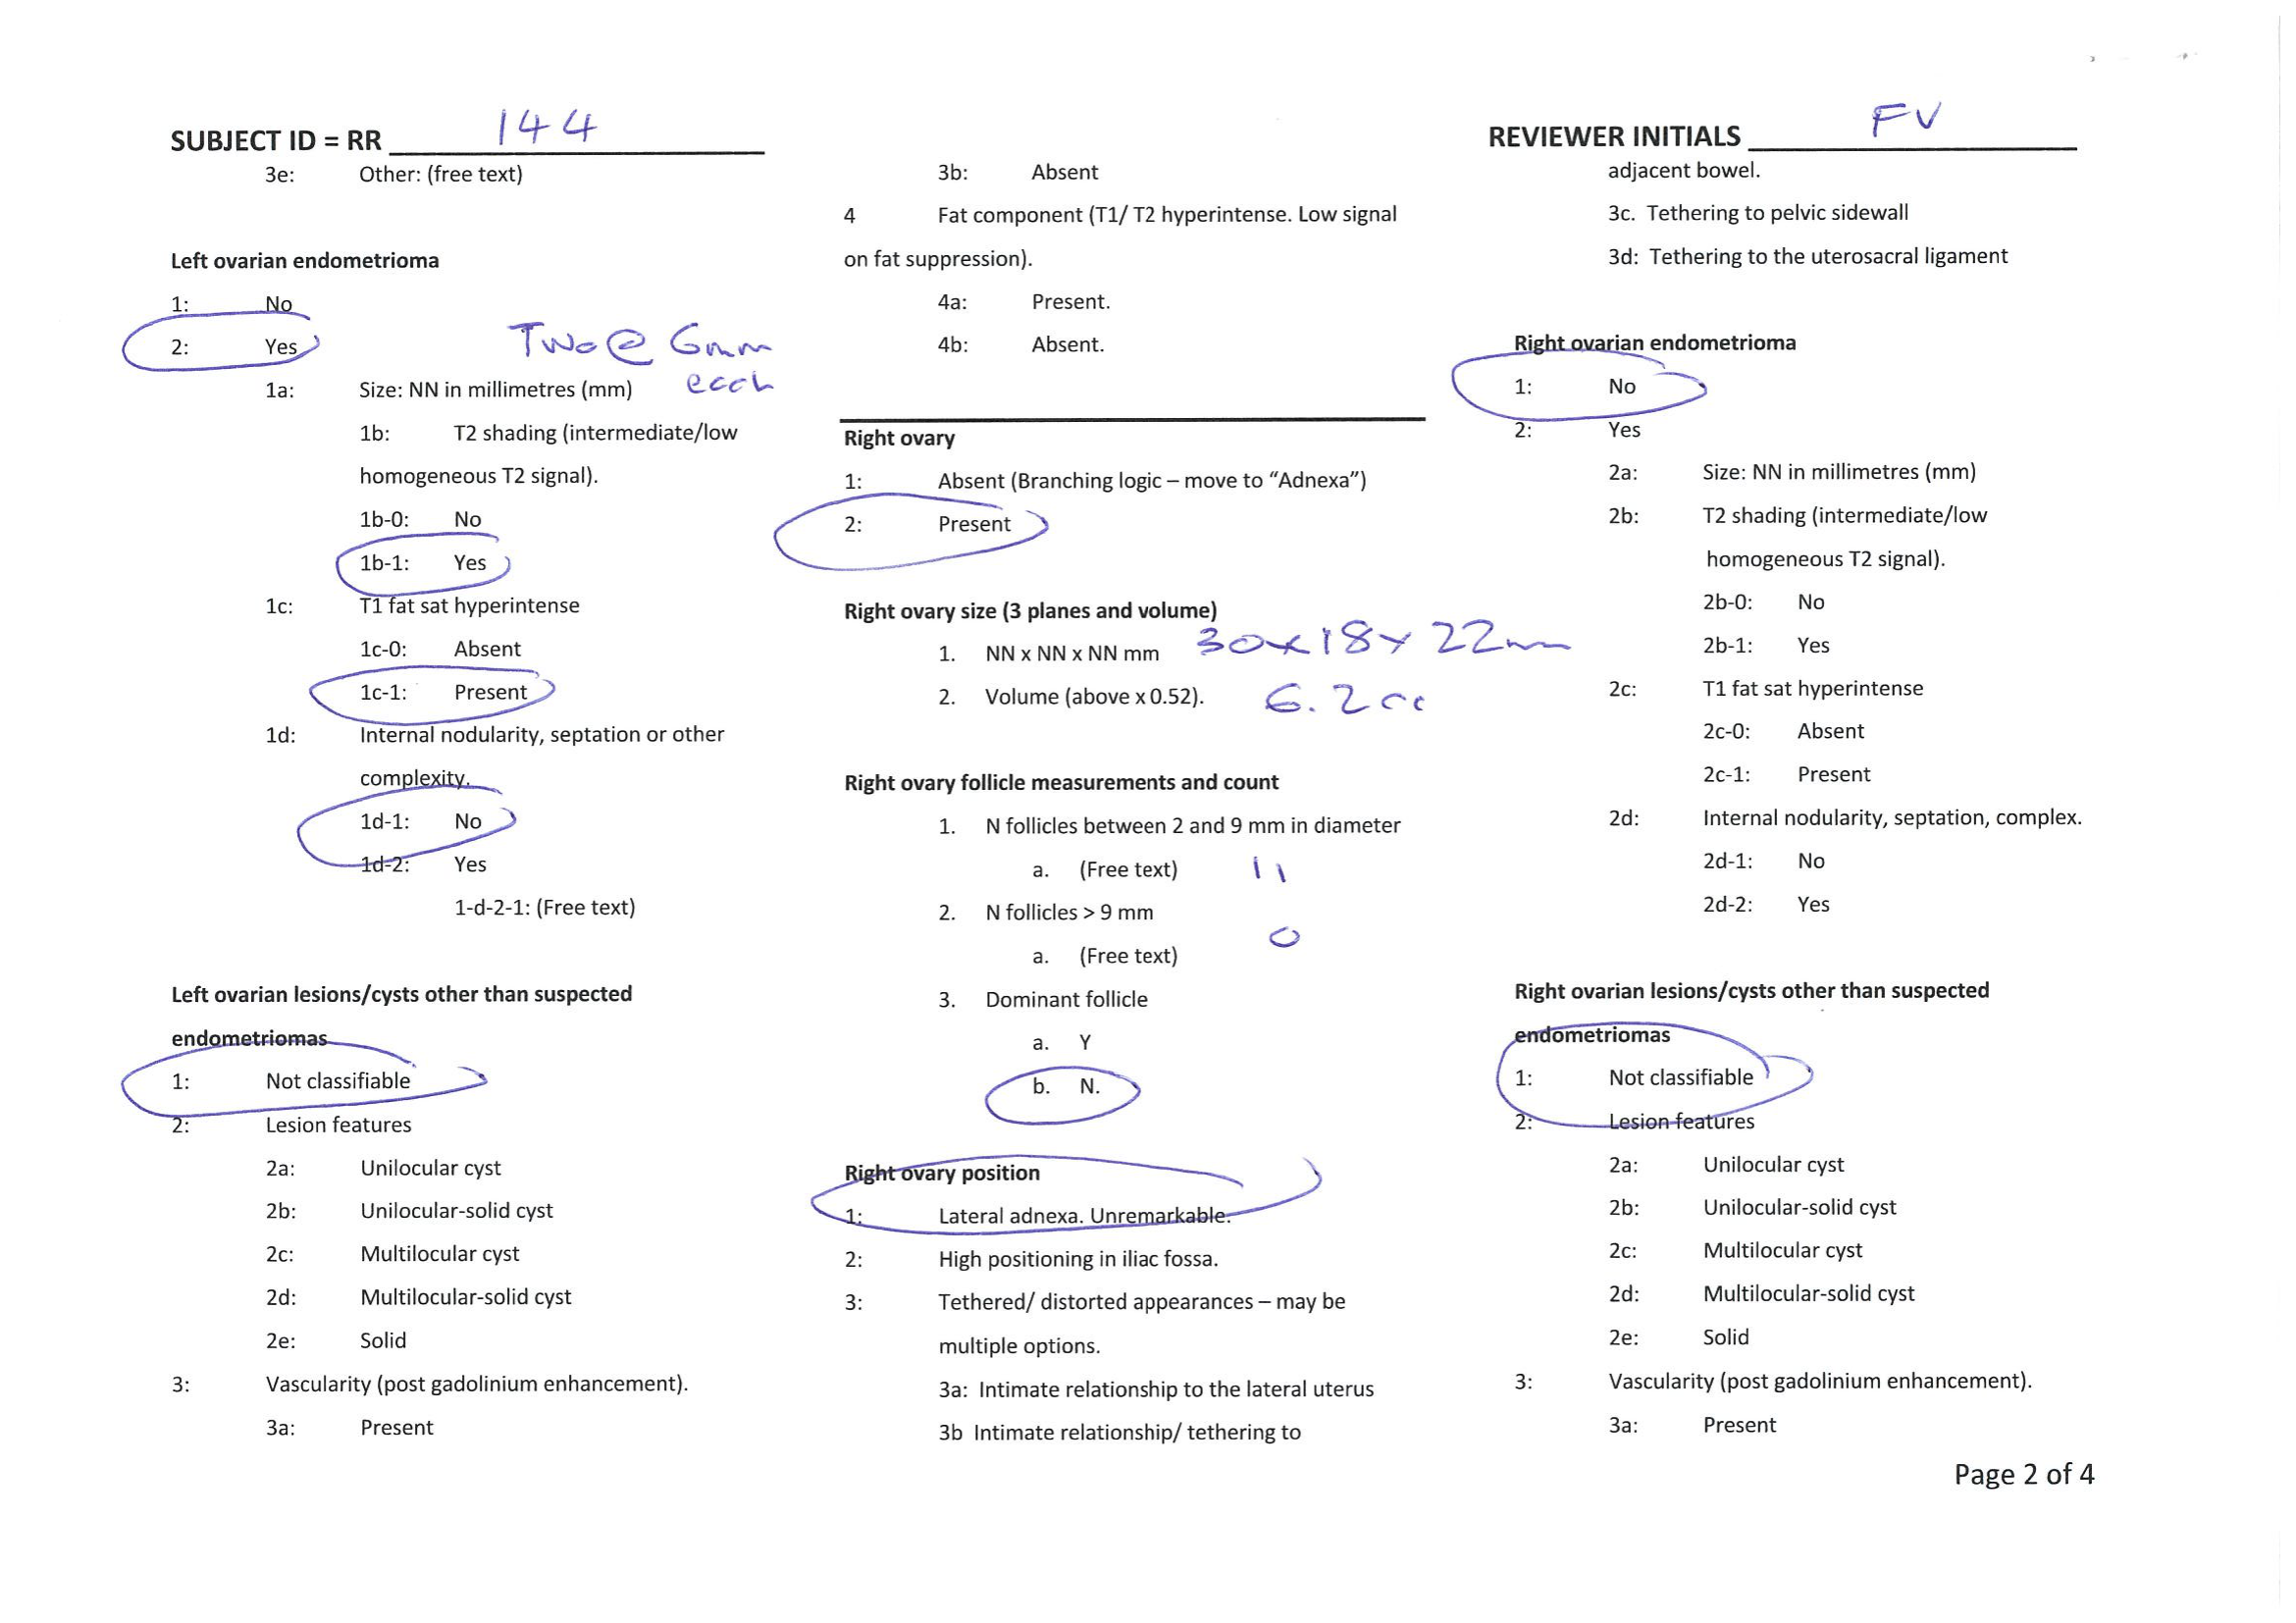 SUBJECT ID = RR 144
3e: Other: (free text)
Left ovarian endometrioma
1: No
2: Yes
Two @ 6mm
each
1a: Size: NN in millimetres (mm)
1b: T2 shading (intermediate/low
homogeneous T2 signal).
1b-0: No
1b-1: Yes
1c: T1 fat sat hyperintense
1c-0: Absent
1c-1: Present
1d: Internal nodularity, septation or other
complexity.
1d-1: No
1d-2: Yes
1-d-2-1: (Free text)
Left ovarian lesions/cysts other than suspected
endometriomas
1: Not classifiable
2: Lesion features
2a: Unilocular cyst
2b: Unilocular-solid cyst
2c: Multilocular cyst
2d: Multilocular-solid cyst
2e: Solid
3: Vascularity (post gadolinium enhancement).
3a: Present
3b: Absent
4 Fat component (T1/ T2 hyperintense. Low signal
on fat suppression).
4a: Present.
4b: Absent.
Right ovary
1: Absent (Branching logic – move to “Adnexa”)
2: Present
Right ovary size (3 planes and volume)
1. NN x NN x NN mm 30x18x 22mm
2. Volume (above x 0.52). 6.2cc
Right ovary follicle measurements and count
1. N follicles between 2 and 9 mm in diameter
a. (Free text) 11
2. N follicles > 9 mm
0
a. (Free text)
3. Dominant follicle
a. Y
b. N.
Right ovary position
1: Lateral adnexa. Unremarkable.
2: High positioning in iliac fossa.
3: Tethered/ distorted appearances – may be
multiple options.
3a: Intimate relationship to the lateral uterus
3b Intimate relationship/ tethering to
REVIEWER INITIALS FV
adjacent bowel.
3c. Tethering to pelvic sidewall
3d: Tethering to the uterosacral ligament
Right ovarian endometrioma
1: No
2: Yes
2a: Size: NN in millimetres (mm)
2b: T2 shading (intermediate/low
homogeneous T2 signal).
2b-0: No
2b-1: Yes
2c: T1 fat sat hyperintense
2c-0: Absent
2c-1: Present
2d: Internal nodularity, septation, complex.
2d-1: No
2d-2: Yes
Right ovarian lesions/cysts other than suspected
endometriomas
1: Not classifiable
2: Lesion features
2a: Unilocular cyst
2b: Unilocular-solid cyst
2c: Multilocular cyst
2d: Multilocular-solid cyst
2e: Solid
3: Vascularity (post gadolinium enhancement).
3a: Present
Page 2 of 4